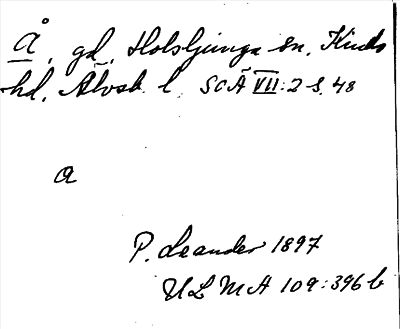 Å, gd, Holsljunga sn, Kinds
hd, Älvsb. l. SOÄ VII:2 s. 48
a
P. Leander 1897
ULMA 109:396 b